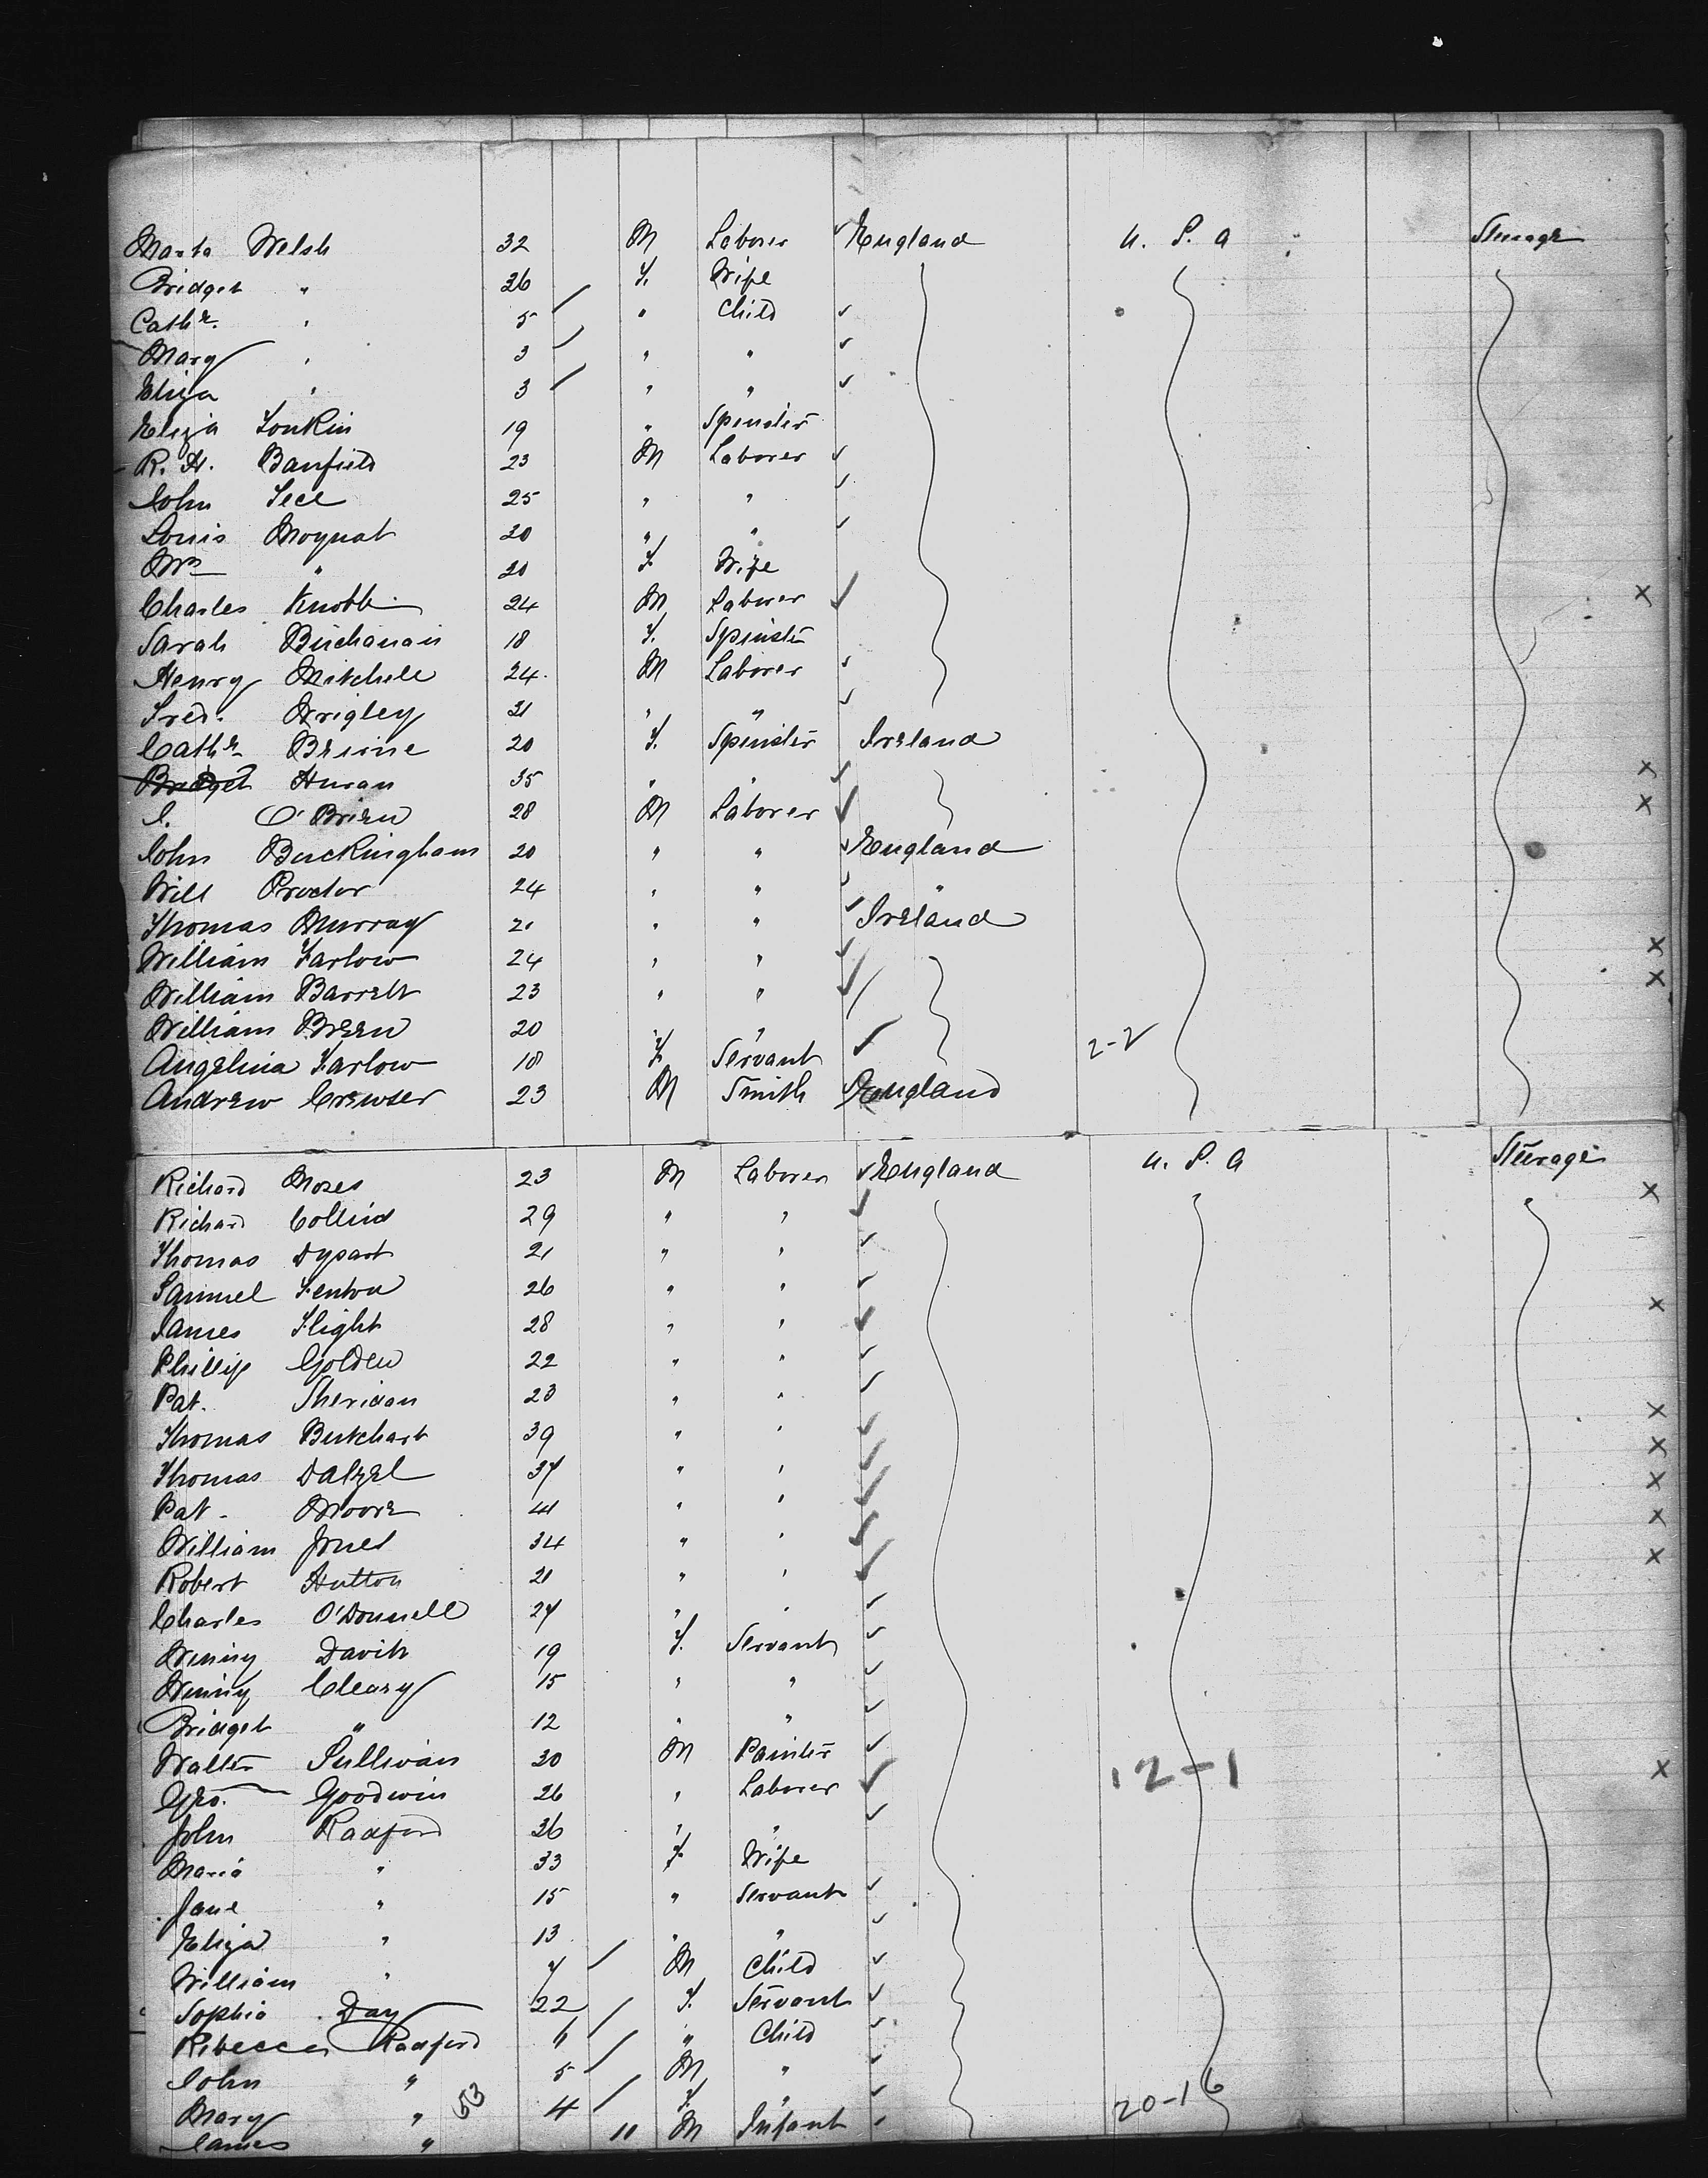 Welsh 32 M Laborer England U. S. A Steerage
Bridget " 26 F. Wife
Cathe. " 5 " Child
Mary " 3 " "
Eliza " 3 " "
Eliza 19 " Spinster
R. H. Banfield 23 M Laborer
John 25 " "
Louis 20 " "
Mrs " 20 F Wife
Charles Knobb 24 M Laborer
Sarah Buchanan 18 F. Spinster
Henry Mitchell 24 M Laborer
Fred. Wrigley 21 " "
Cathe 20 F. Spinster Ireland
Bridget 35 " "
O'Brien 28 M Laborer
John Buckingham 20 " " England
Will Proctor 24 " " "
Thomas Murray 21 " " Ireland
William Farlow 24 " "
William Barrett 23 " "
William Breen 20 "
Angelina Farlow 18 F Servant 2-2
Andrew Crewser 23 M Smith England
Richard Moses 23 M Laborer England U. S. A Steerage
Richard Collins 29 " "
Thomas Dysart 21 " "
Samuel Fenton 26 " "
James Flight 28 " "
Phillip Golden 22 " "
Pat. Sheridan 23 " "
Thomas Butchart 39 " "
Thomas Dalzel 37 " "
Pat. Moore " "
William Jones 34 " "
Robert Hutton 21 " "
Charles O'Donnell 27 " "
Winny Davitt 19 F. Servant
Winny Cleary 15 " "
Bridget " 12 " "
Walter Sullivan 30 M Painter
Geo. Goodwin 26 " Laborer 12-1
John Radford 36 " "
Maria " 33 F Wife
Jane " 15 " Servant
Eliza " 13 " "
William " 7 M Child
Sophia Day 22 F. Servant
Rebecca Radford " Child
John " 5 M "
Mary " 4 F. " 20-16
James " 11 M Infant